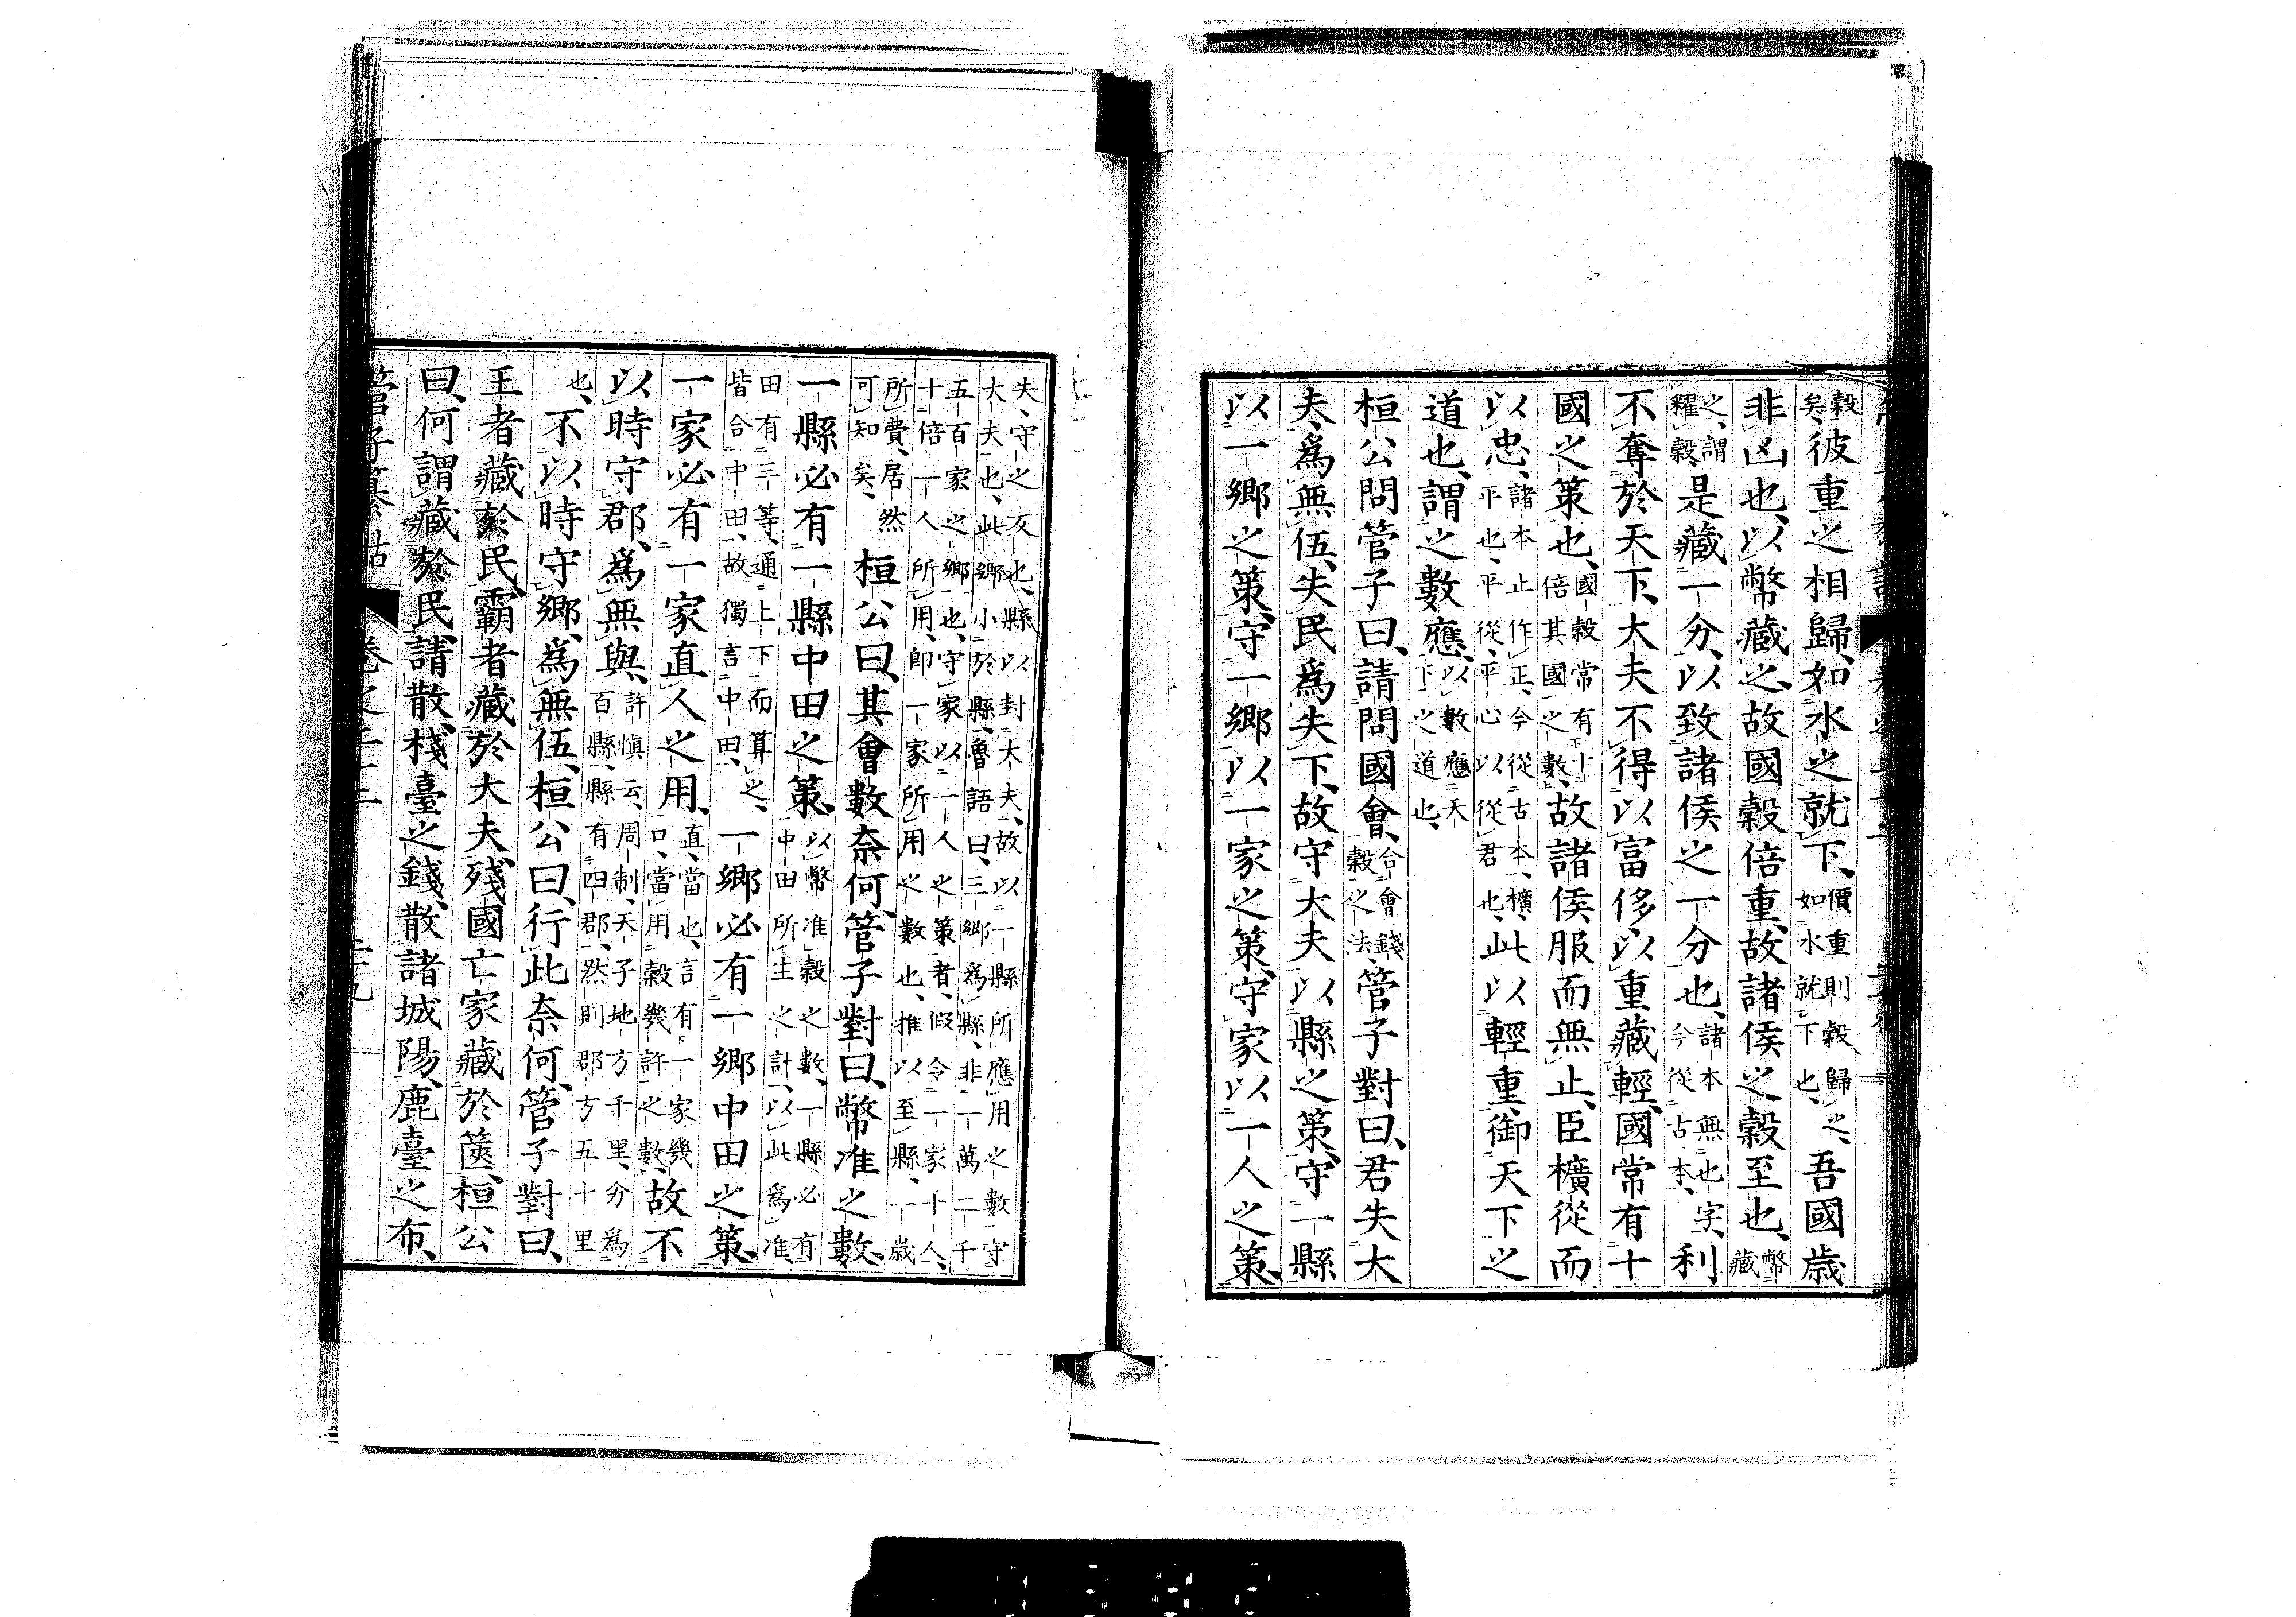 穀
矣、彼重之相歸、如水之就下、價重則穀歸之、如水就下也、吾國歲
非凶也、以幣藏之、故國穀倍重、故諸侯之穀至也、幣藏
之、謂糴穀、是藏一分、以致諸侯之一分也、諸本無也字、今從古本、利
不奪於天下、大夫不得以富侈、以重藏輕、國常有十
國之策也、國穀常有十倍其國之數、故諸侯服而無止、臣櫎從而
以忠、諸本止作正、今從古本、櫎、平也、平從、平心以從君也、此以輕重御天下之
道也、謂之數應、以數應天下之道也、
桓公問管子曰、請問國會、合會錢穀之法、管子對曰、君失大
夫、爲無伍、失民爲失下、故守大夫以縣之策、守一縣
以一鄉之策、守一鄉以一家之策、守家以一人之策、
失、守之反也、縣以封大夫、故以一縣所應用之數守
大夫也、此鄉小於縣、魯語曰、三鄉爲縣、非一萬二千
五百家之鄉也、守家以一人之策者、假令一家十人、
十倍一人所用、卽一家所用之數也、推以至縣、一歲
所費、居然可知矣、桓公曰、其會數奈何、管子對曰、幣准之數、
一縣必有一縣中田之策、以幣准穀之數、一縣必有中田所生之計、以此爲准、
田有三等、通上下而算之、皆合中田、故獨言中田、一鄉必有一鄉中田之策、
一家必有一家直人之用、直、當也、言有一家幾口、當用穀幾許之數、故不
以時守郡、爲無與、許愼云、周制、天子地方千里、分爲百縣、縣有四郡、然則郡方五十里
也、不以時守鄉、爲無伍、桓公曰、行此奈何、管子對曰、
王者藏於民、霸者藏於大夫、殘國亡家藏於篋、桓公
曰、何謂藏於民、請散棧臺之錢、散諸城陽、鹿臺之布、
管子纂詁 卷之二十二